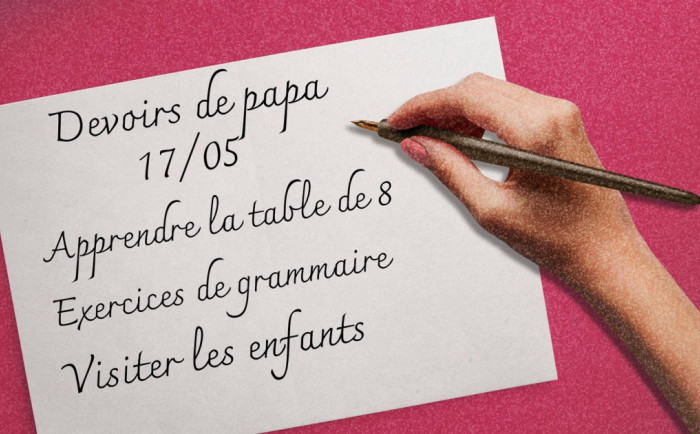 Devoirs de papa
17/05
Apprendre la table de 8
Exercices de grammaire
Visiter les enfants